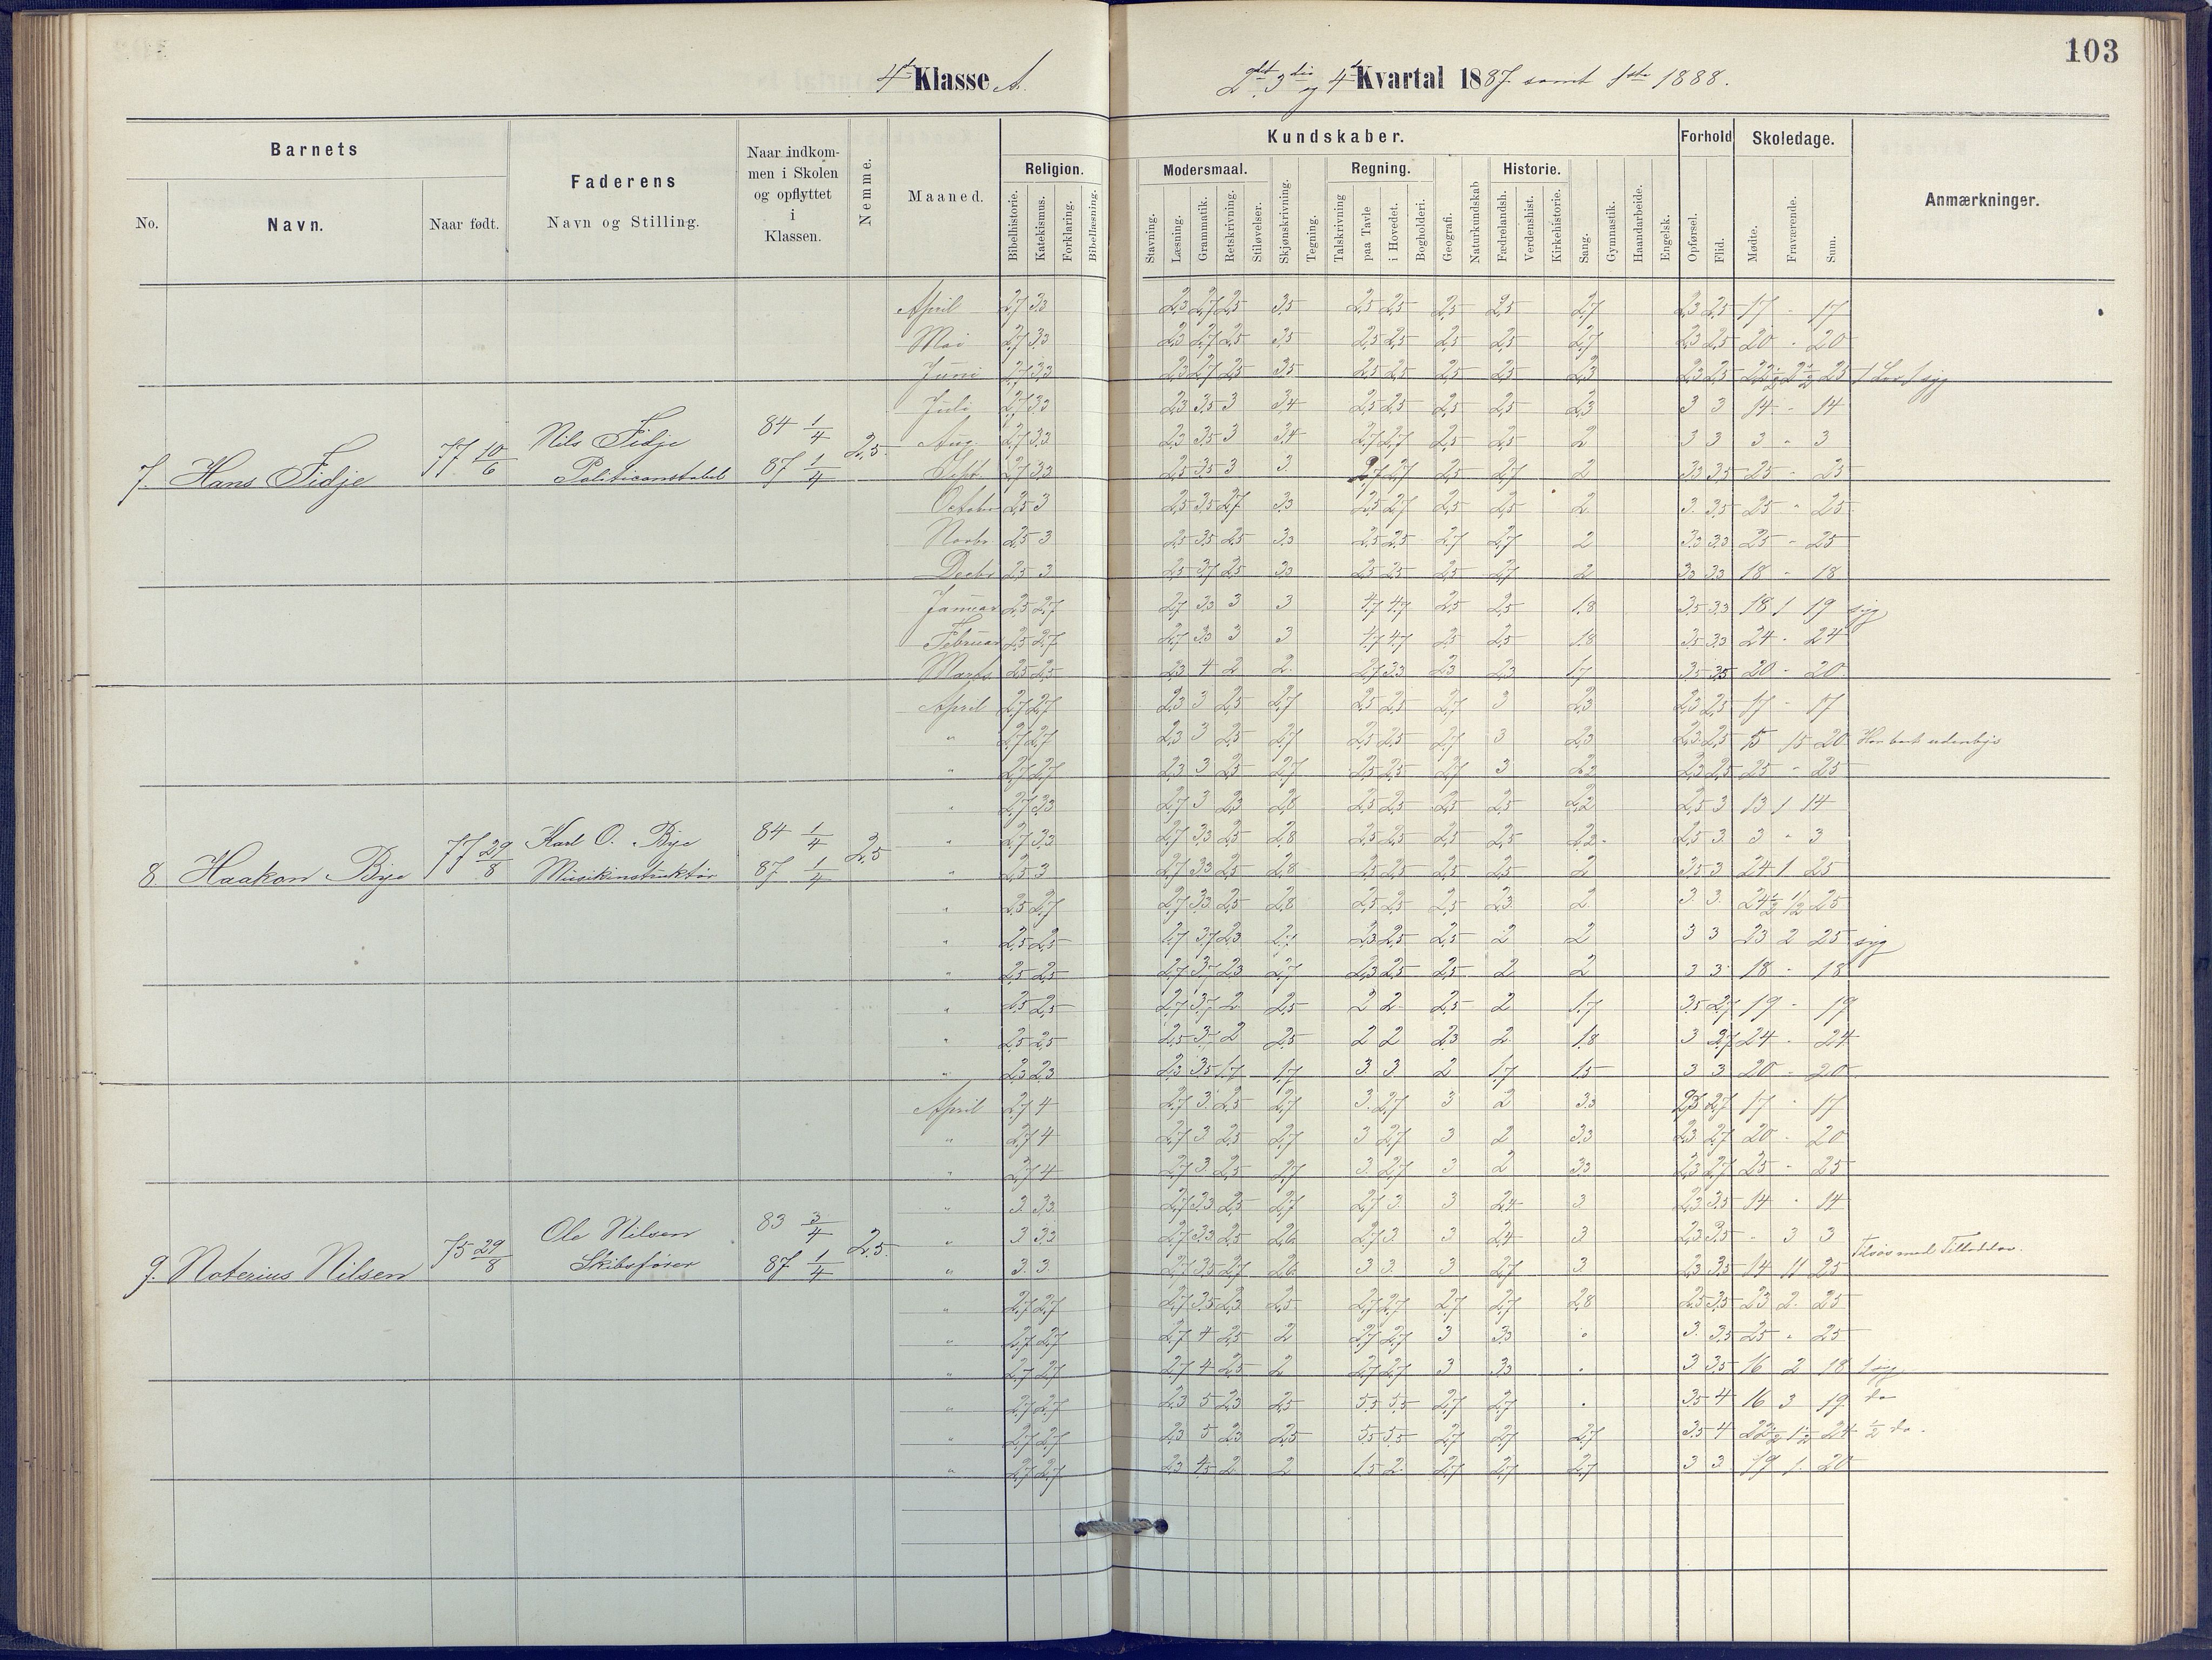 103
4de Klasse A.
2det 3die og 4de Kvartal 1887 samt 1ste 1888.
Barnets
No.
Navn.
Naar født.
Faderens
Navn og Stilling.
Naar indkom-
men i Skolen
og opflyttet
i
Klassen.
Nemme.
Maaned.
Kundskaber.
Religion.
Bibelhistorie.
Katekismus.
Forklaring.
Bibellæsning.
Modersmaal.
Stavning.
Læsning.
Grammatik.
Retskrivning.
Stiløvelser.
Skjønskrivning.
Tegning.
Regning.
Talskrivning
paa Tavle
i Hovedet.
Bogholderi.
Geografi.
Naturkundskab
Historie.
Fædrelandsh.
Verdenshist.
Kirkehistorie.
Sang.
Gymnastik.
Haandarbeide.
Engelsk.
Forhold
Opførsel.
Flid.
Skoledage.
Mødte.
Fraværende.
Sum.
Anmærkninger.
7. Hans Fidje 77 10/6 Nils Fidje Politiconstabel 84 1/4 87 1/4 2,5
April 2,7 3,3 2,3 2,7 2,5 3,5 2,5 2,5 2,5 2,5 2,7 2,3 2,5 17 - 17
Mai 2,7 3,3 2,3 2,7 2,5 3,5 2,5 2,5 2,5 2,5 2,7 2,3 2,5 20 - 20
Juni 2,7 3,3 2,3 2,7 2,5 3,5 2,5 2,5 2,5 2,5 2,3 2,3 2,5 22 1/2 2 1/2 25 1 Lov 1 syg
Juli 2,7 3,3 2,3 3,5 3 3,4 2,5 2,5 2,5 2,5 2,3 3 3 14 - 14
Aug. 2,7 3,3 2,3 3,5 3 3,4 2,7 2,7 2,5 2,5 2 3 3 3 - 3
Septr 2,7 3,3 2,5 3,5 3 3 2,7 2,7 2,5 2,7 2 3,3 3,5 25 - 25
Octobr 2,5 3 2,5 3,5 2,7 3,3 2,5 2,7 2,5 2,5 2 3 3,5 25 - 25
Novbr 2,5 3 2,5 3,5 2,5 3,3 2,5 2,5 2,7 2,7 2 3,3 3,3 25 - 25
Decbr 2,5 3 2,5 3,7 2,5 3,3 2,5 2,5 2,5 2,7 2 3,3 3,3 18 - 18
Januar 2,5 2,7 2,7 3,3 3 3 4,7 4,7 2,5 2,5 1,8 3,5 3,3 18 1 19 syg
Februar 2,5 2,7 2,7 3,3 3 3 4,7 4,7 2,5 2,5 1,8 3,5 3,3 24 - 24
Marts 2,5 2,5 2,3 4 2 2 2,7 3,3 2,3 2,3 1,7 3,5 3,5 20 - 20
8. Haakon Bye 77 29/8 Karl O. Bye Musikinstruktør 84 1/4 87 1/4 2,5
April 2,7 2,7 2,3 3 2,5 2,7 2,5 2,5 2,7 3 2,3 2,3 2,5 17 - 17
" 2,7 2,7 2,3 3 2,5 2,7 2,5 2,5 2,7 3 2,3 2,3 2,5 15 15 20 Har bort udenbys
" 2,7 2,7 2,3 3 2,5 2,7 2,5 2,5 2,7 3 2,2 2,3 2,5 25 - 25
" 2,7 3,3 2,7 3 2,3 2,8 2,5 2,5 2,5 2,5 2,2 2,5 3 13 1 14
" 2,7 3,3 2,7 3,3 2,5 2,8 2,5 2,5 2,5 2,5 2,2 2,5 3 3 - 3
" 2,5 3 2,7 3,3 2,5 2,8 2,5 2,5 2,5 2,5 2 3,5 3 24 1 25
" 2,5 2,7 2,7 3,3 2,5 2,8 2,5 2,5 2,5 2,3 2 3 3 24 1/2 1/2 25
" 2,5 2,5 2,7 3,7 2,3 2,7 2,3 2,5 2,5 2 2 3 3 23 2 25 syg
" 2,5 2,5 2,7 3,7 2,3 2,7 2,3 2,5 2,5 2 2 3 3 18 - 18
" 2,5 2,5 2,7 3,7 2 2,5 2 2 2,5 2 1,7 3,5 2,7 19 - 19
" 2,5 2,5 2,5 3,7 2 2,5 2 2 2,3 2 1,8 3 2,7 24 - 24
" 2,3 2,3 2,3 3,5 1,7 1,7 3 3 2 1,7 1,5 3 3 20 - 20
9. Noterius Nilsen 75 29/8 Ole Nilsen Skibsfører 83 3/4 87 1/4 2,5
April 2,7 4 2,7 3 2,5 2,7 3 2,7 3 2 3,3 2,3 2,7 17 - 17
" 2,7 4 2,7 3 2,5 2,7 3 2,7 3 2 3,3 2,3 2,7 20 - 20
" 2,7 4 2,7 3 2,5 2,7 3 2,7 3 2 3,3 2,3 2,7 25 - 25
" 3 3,3 2,7 3,3 2,5 2,7 2,7 3 3 2,4 3 2,3 3,5 14 - 14
" 3 3,3 2,7 3,3 2,5 2,6 2,7 3 3 2,4 3 2,3 3,5 - 3 3
" 3 3 2,7 3,5 2,7 2,6 3 3 3 2,7 3 2,3 3,5 14 11 25 Tilsøs med Tilladelse.
" 2,7 2,7 2,7 3,5 2,3 2,5 2,7 2,7 2,7 2,7 2,8 2,5 3,5 23 2 25
" 2,7 2,7 2,7 4 2,5 2 2,7 2,7 3 3,3 " 3 3,5 25 - 25
" 2,7 2,7 2,7 4 2,5 2 2,7 2,7 3 3,3 " 3 3,5 16 2 18 1 syg
" 2,7 2,7 2,3 5 2,3 2,5 5,5 5,5 2,7 2,7 " 3,5 4 16 3 19 do
" 2,7 2,7 2,3 5 2,3 2,5 5,5 5,5 2,7 2,7 2,7 3,5 4 22 1/2 1 1/2 24 1/2 do.
" 2,7 2,7 2,3 4,5 2 2 1,5 2 2,7 2,7 2,7 3 3 19 1 20